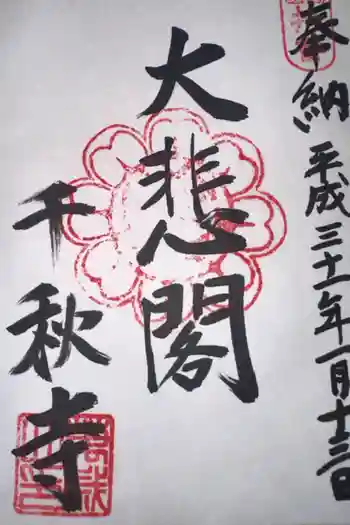 奉納 平成三十一年一月十三日
大悲閣
千秋寺